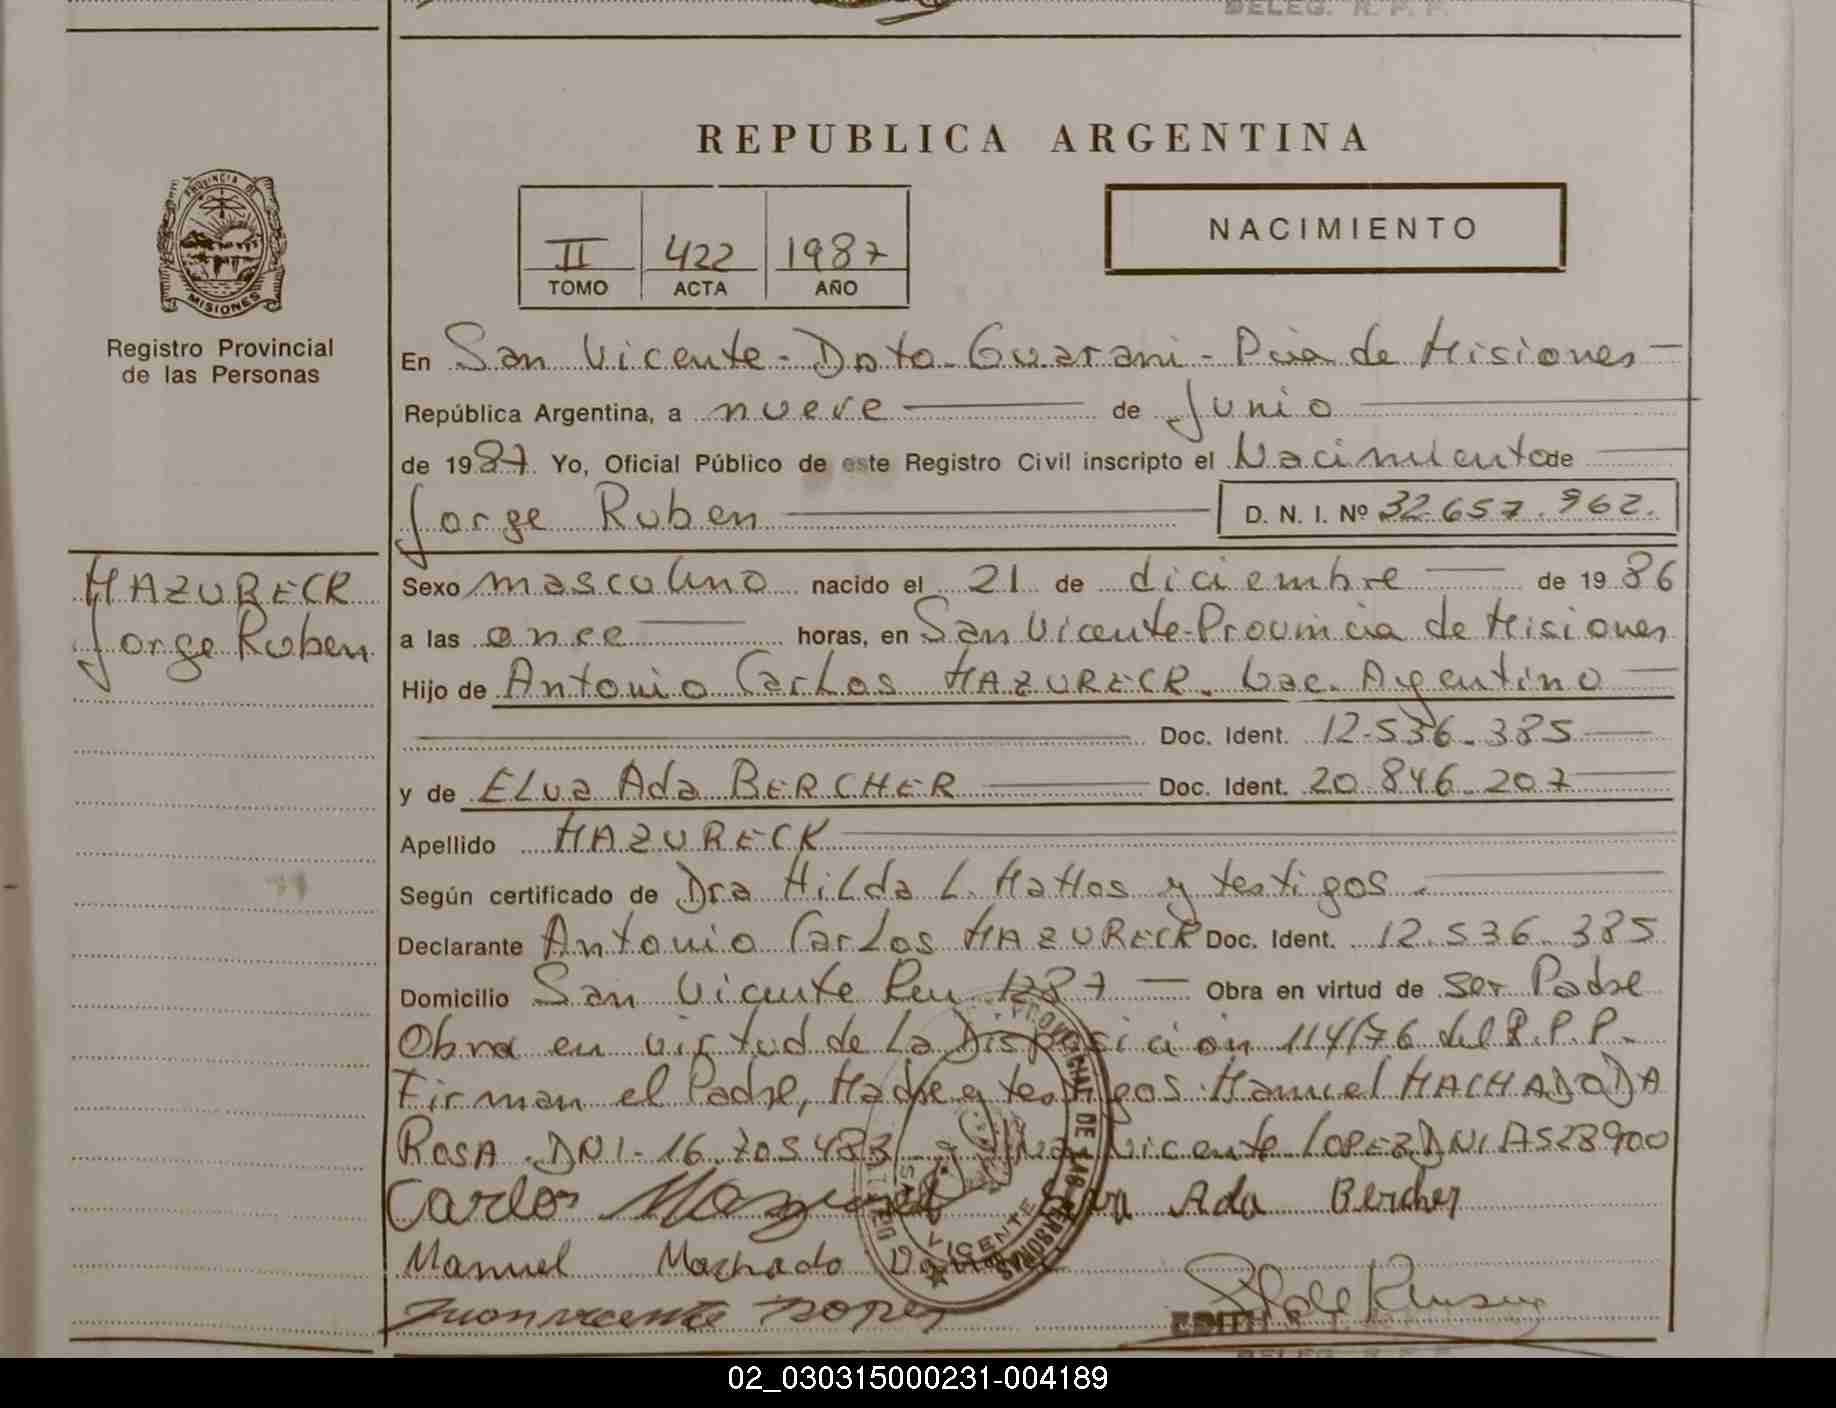 DELEG. R. P. P.
REPUBLICA ARGENTINA
PROVINCIA DE
MISIONES
Registro Provincial
de las Personas
II 422 1987
TOMO ACTA AÑO
NACIMIENTO
En San Vicente - Dpto - Guarani - Pcia de Misiones
República Argentina, a nueve de Junio
de 1987 Yo, Oficial Público de este Registro Civil inscripto el Nacimiento de
Jorge Ruben D. N. I. Nº 32.657.962.
MAZURECK
Jorge Ruben
Sexo masculino nacido el 21 de diciembre de 1986
a las once horas, en San Vicente - Provincia de Misiones
Hijo de Antonio Carlos MAZURECK. Nac. Argentino
Doc. Ident. 12.536.385
y de ELva Ada BERCHER Doc. Ident. 20.846.207
Apellido MAZURECK
Según certificado de Dra Hilda L. Mattos y testigos.
Declarante Antonio Carlos MAZURECK Doc. Ident. 12.536.385
Domicilio San Vicente 1287 Obra en virtud de ser Padre
Obra en virtud de La Disposicion 114/76 del R.P.P.
Firman el Padre, Madre y testigos Manuel MACHADO DA
ROSA. DNI. 16.705.483 Vicente LOPEZ DNI 7528900
Carlos Elva Ada Bercher
Manuel Machado Da
Juan vicente Lopez
PROVINCIAL DE LAS PERSONAS
VICENTE
EDITH
DELEG. R. P. P.
02_030315000231-004189